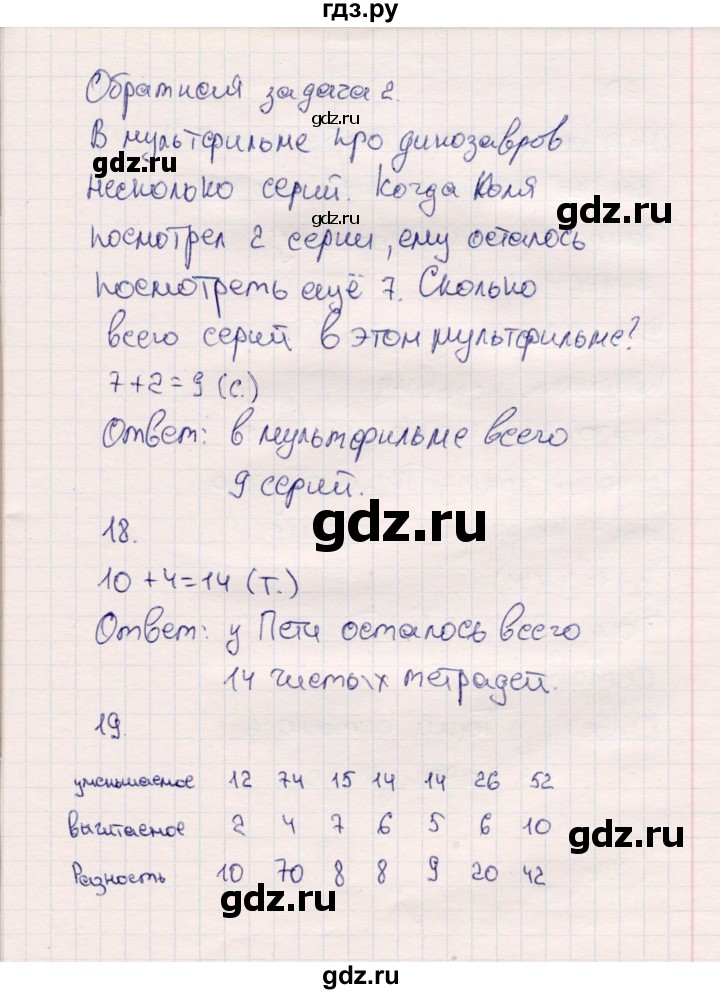 гдз.ру
Обратная задача 2.
gdz.ru
В мультфильме про динозавров
gdz.ru
несколько серий. Когда Коля
gdz.ru
gdz.ru
посмотрел 2 серии, ему осталось
gdz.ru
посмотреть ещё 7. Сколько
всего серий в этом мультфильме?
7+2=9 (с.)
gdz.ru
Ответ: в мультфильме всего
9 серий.
gdz.ru
18.
10+4=14 (т.)
gdz.ru
Ответ: у Пети осталось всего
14 чистых тетрадей.
gdz.ru
19.
уменьшаемое 12 74 15 14 14 26 52
вычитаемое 2 4 7 6 5 6 10
gdz.ru
Разность 10 70 8 8 9 20 42
gdz.ru
gdz.ru